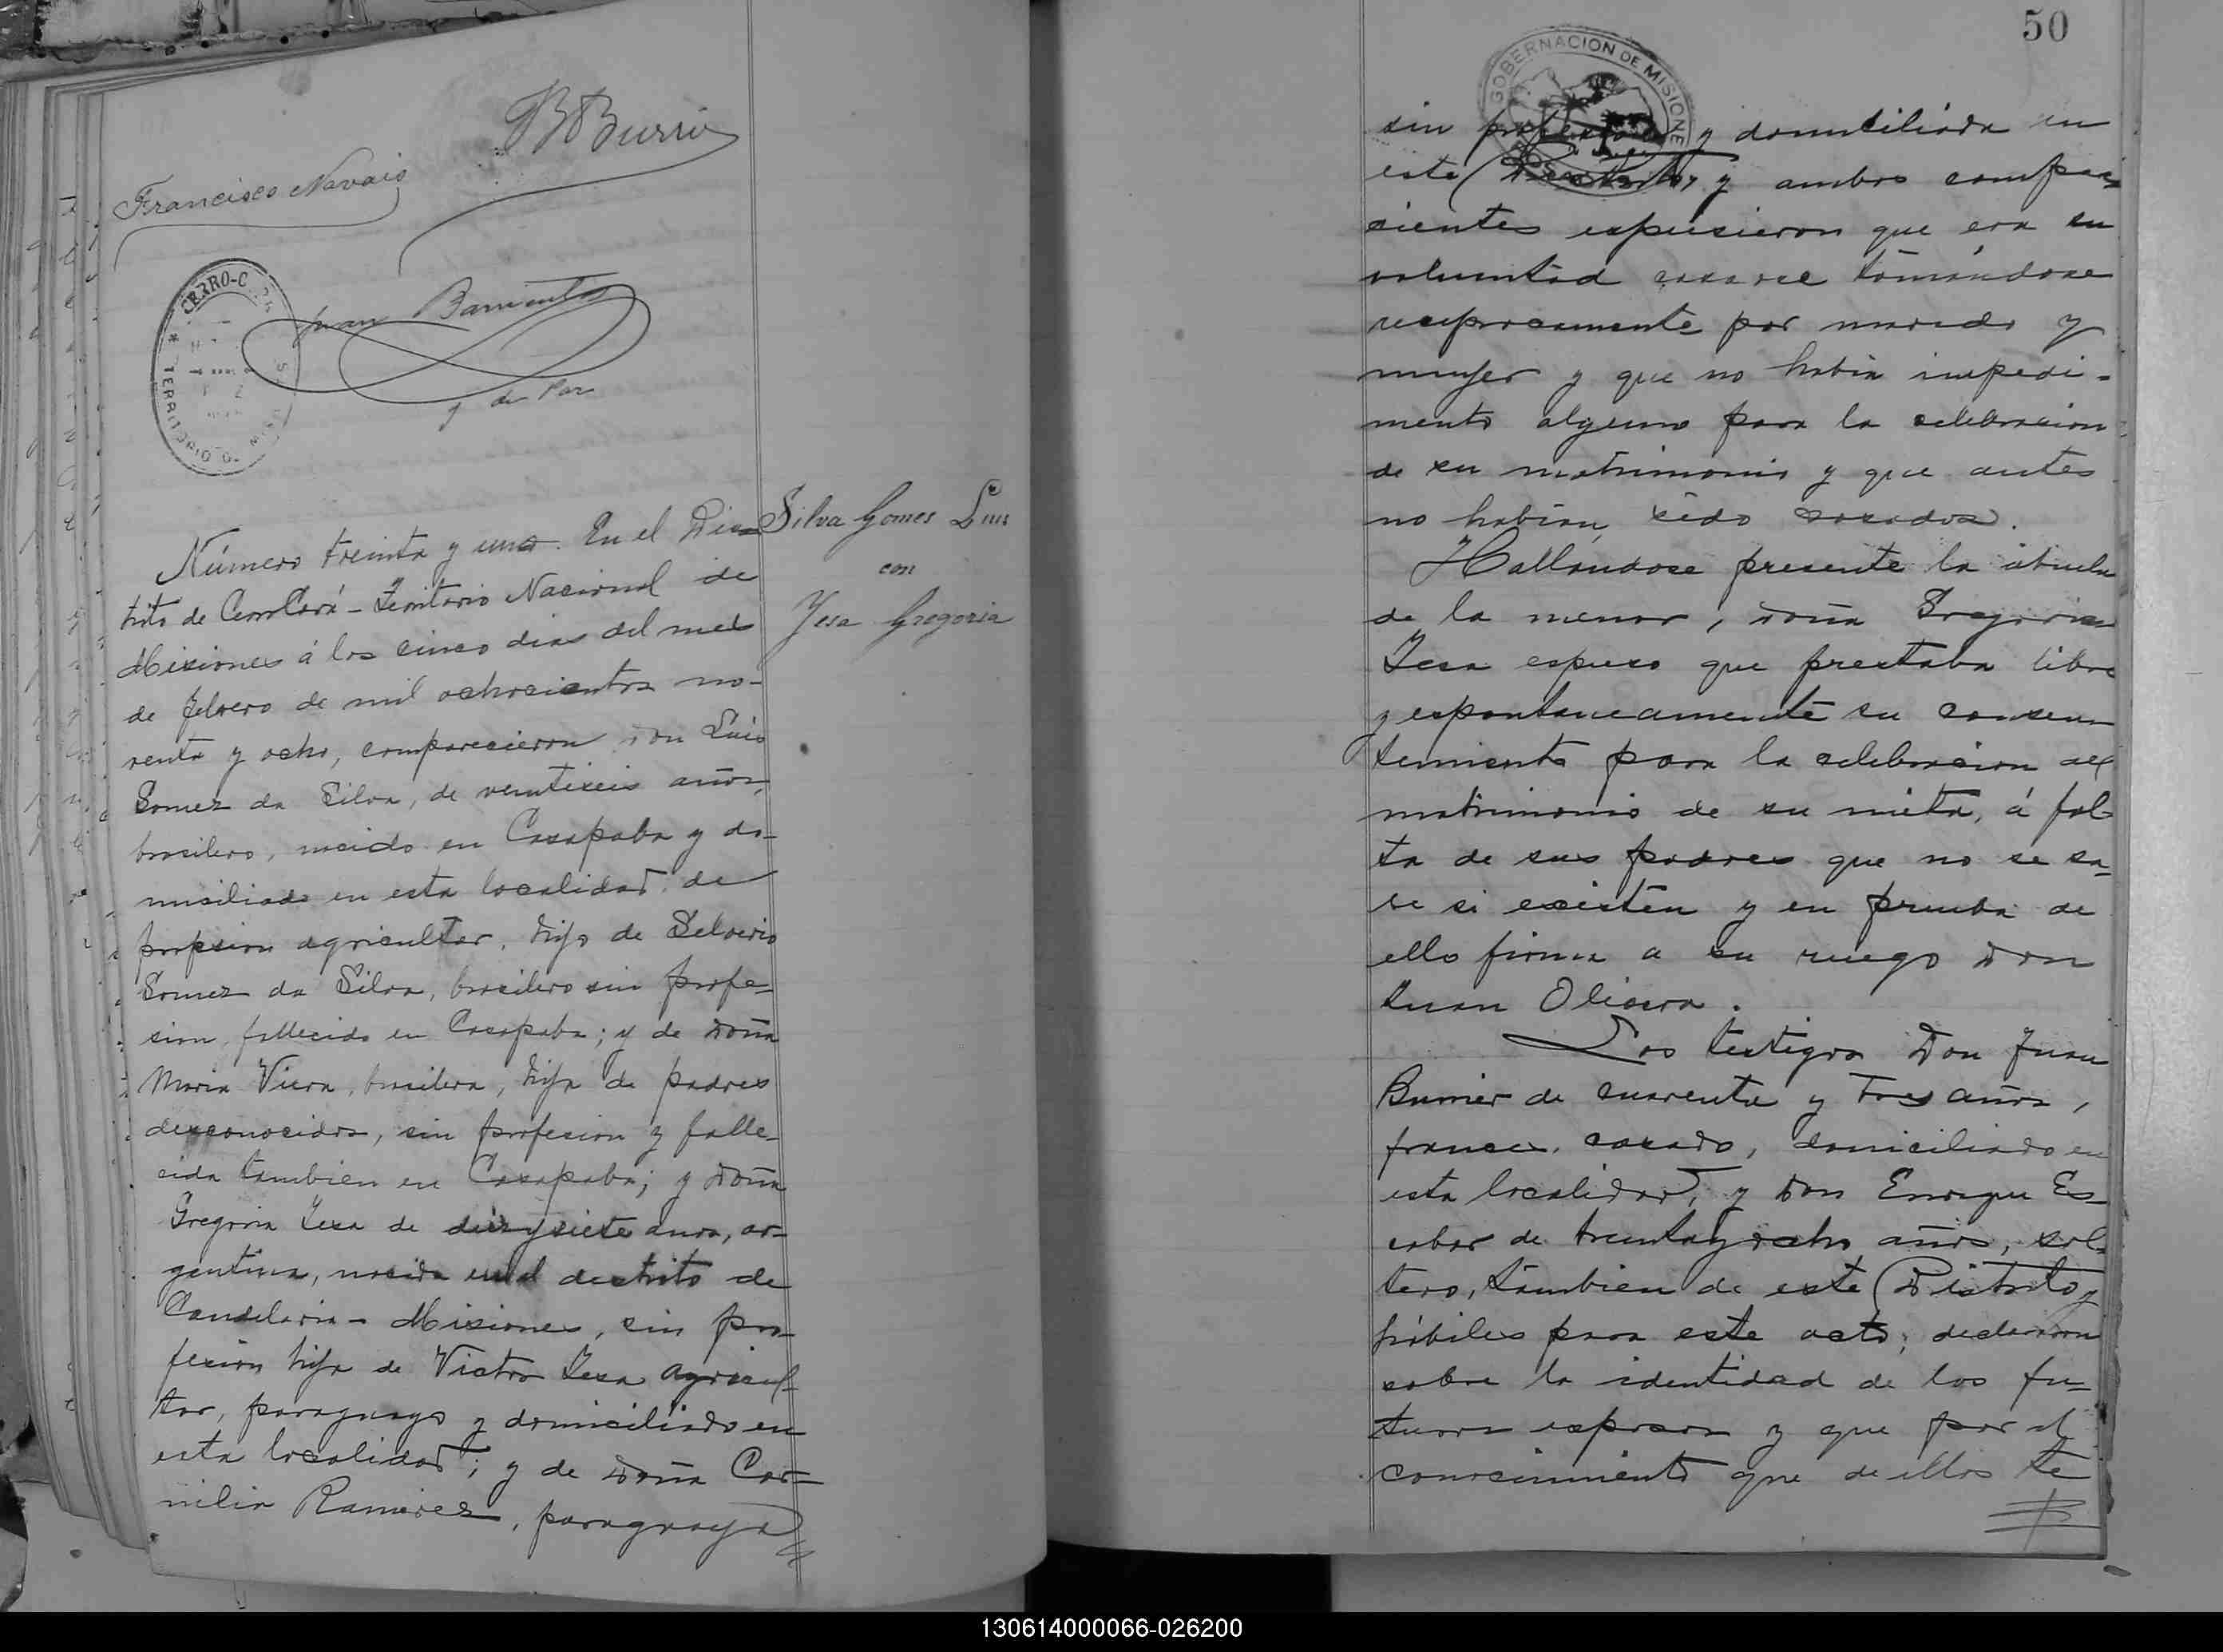 50
Francisco Navais
Juan Barrientos
J de Paz
CERRO-C
TERRITORIO
GOBERNACION DE MISIONE
Silva Gomes Luis
con
Yesa Gregoria
Número treinta y uno. En el Dis
trito de Cerro Corá - Territorio Nacional de
Misiones á los cinco dias del mes
de febrero de mil ochocientos no-
venta y ocho, comparecieron Don Luis
Gomez da Silva, de veintiseis años,
brasilero, nacido en Casapaba y do-
misiliado en esta localidad de
profesion agricultor, hijo de Selverio
Gomez da Silva, brasilero sin profe-
sion, fallecido en Casapaba; y de Doña
Maria Viera, brasilera, hija de padres
desconocidos, sin profesion y falle-
cida tambien en Casapaba; y Doña
Gregoria Yesa de diezysiete anos, ar-
gentina, nacida en el destrito de
Candelaria - Misiones, sin pro-
fesión hija de Victor Yesa agricul-
tor, paraguayo y domiciliado en
esta localidad; y de Doña Cor-
nilia Ramirez, paraguaya
sin profesion y domiciliada en
este Distrito, y ambos compa-
cientes espusieron que era su
voluntad casarse tomándose
reciprocamente por marido y
mujer y que no habia impedi-
mento alguno para la celebracion
de su matrimonio y que antes
no habian sido casados.
Hallandose presente la abuela
de la menor, Doña Gregoria
Yesa espuso que prestaba libre
y espontaneamente su consen
temiento para la celebracion del
matrimonio de su nieta, á fal-
ta de sus padres que no se sa-
be si existen y en prueba de
ello firma a su ruego Don
Juan Olivera.
Los testigos Don Juan
Burrier de cuarenta y tres años,
frances, casado, domiciliado en
esta localidad, y Don Enrique Es-
cobar de treinta y ocho años, sol-
tero, tambien de este Distrito y
hábiles para este acto; declararon
sobre la identidad de los fu-
turos esposos y que por el
conocimiento que de ellos te
130614000066-026200